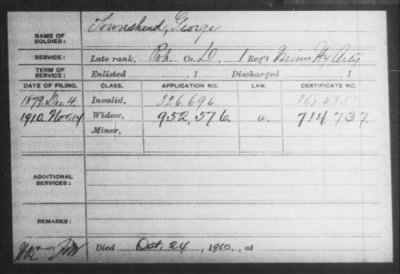 NAME OF SOLDIER: Townshend, George
SERVICE: Late rank, Co. D, 1 Reg't Hy Arty
TERM OF SERVICE: Enlisted , 1 Discharged , 1
DATE OF FILING. CLASS. APPLICATION NO. LAW. CERTIFICATE NO.
1879. Dec. 4 Invalid, 326.696
1910. Nov. 14 Widow, 952,576 714737.
Minor,
ADDITIONAL SERVICES:
REMARKS:
Died Oct. 24, 1910, at